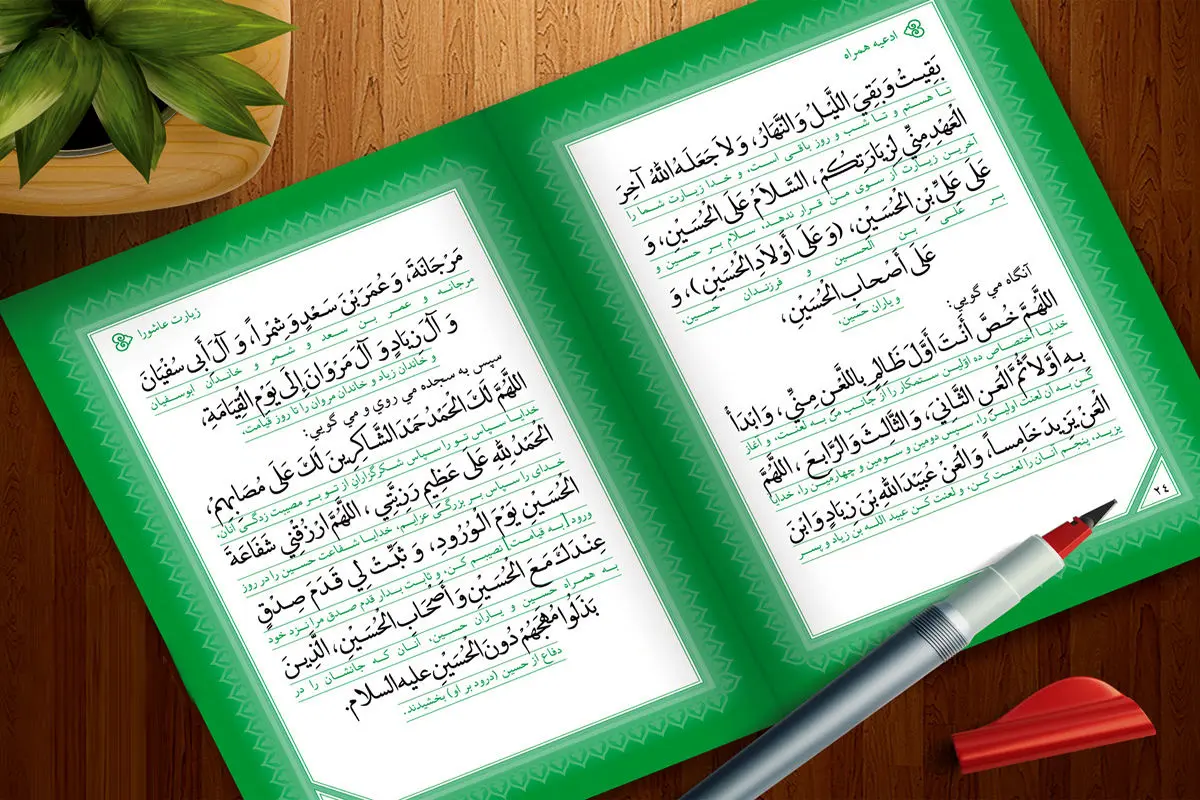 ادعیه همراه
بَقِيتُ وَ بَقِيَ اللَّيْلُ وَ النَّهَارُ، وَ لاَ جَعَلَهُ اللَّهُ آخِرَ
تا هستم و تا شب و روز باقی است، و خدا زیارت شما را
الْعَهْدِ مِنِّي لِزِيَارَتِكُمْ، السَّلاَمُ عَلَى الْحُسَيْنِ، وَ
آخرین زیارت از سوی من قرار ندهد، سلام بر حسین و
عَلَى عَلِيِّ بْنِ الْحُسَيْنِ، (وَ عَلَى أَوْلاَدِ الْحُسَيْنِ)، وَ
بر علی بن الحسین و فرزندان حسین،
عَلَى أَصْحَابِ الْحُسَيْنِ،
و یاران حسین،
آنگاه مي گويي:
اللَّهُمَّ خُصَّ أَنْتَ أَوَّلَ ظَالِمٍ بِاللَّعْنِ مِنِّي، وَ ابْدَأْ
خدایا اختصاص ده اوّلین ستمکار را از جانب من به لعنت، و آغاز
بِهِ أَوَّلاً ثُمَّ الْعَنِ الثَّانِيَ، وَ الثَّالِثَ وَ الرَّابِعَ، اللَّهُمَّ
کن به آن لعنت اولین را، سپس دومین و سومین و چهارمین را، خدایا
الْعَنْ يَزِيدَ خَامِساً، وَ الْعَنْ عُبَيْدَ اللَّهِ بْنَ زِيَادٍ وَ ابْنَ
یزید، پنجم آنان را لعنت کن، و لعنت کن عبید الله بن زیاد و پسر
٢٤
زیارت عاشورا
مَرْجَانَةَ، وَ عُمَرَ بْنَ سَعْدٍ وَ شِمْراً، وَ آلَ أَبِي سُفْيَانَ
مرجانه و عمر بن سعد و شمر و خاندان ابوسفیان
وَ آلَ زِيَادٍ وَ آلَ مَرْوَانَ إِلَى يَوْمِ الْقِيَامَةِ،
و خاندان زیاد و خاندان مروان را تا روز قیامت.
سپس به سجده مي روي و مي گويي:
اللَّهُمَّ لَكَ الْحَمْدُ حَمْدَ الشَّاكِرِينَ لَكَ عَلَى مُصَابِهِمْ،
خدایا سپاس تو را سپاس شکرگزاران از تو بر مصیبت زدگی آنان،
الْحَمْدُ لِلَّهِ عَلَى عَظِيمِ رَزِيَّتِي، اللَّهُمَّ ارْزُقْنِي شَفَاعَةَ
خدای را سپاس بر بزرگی عزایم، خدایا شفاعت حسین را در روز
الْحُسَيْنِ يَوْمَ الْوُرُودِ، وَ ثَبِّتْ لِي قَدَمَ صِدْقٍ
ورود [به قیامت] نصیبم کن، و ثابت بدار قدم صدق مرا نزد خود
عِنْدَكَ مَعَ الْحُسَيْنِ وَ أَصْحَابِ الْحُسَيْنِ، الَّذِينَ
به همراه حسین و یاران حسین، آنان که جانشان را در
بَذَلُوا مُهَجَهُمْ دُونَ الْحُسَيْنِ عليه السلام.
دفاع از حسین (درود بر او) بخشیدند.